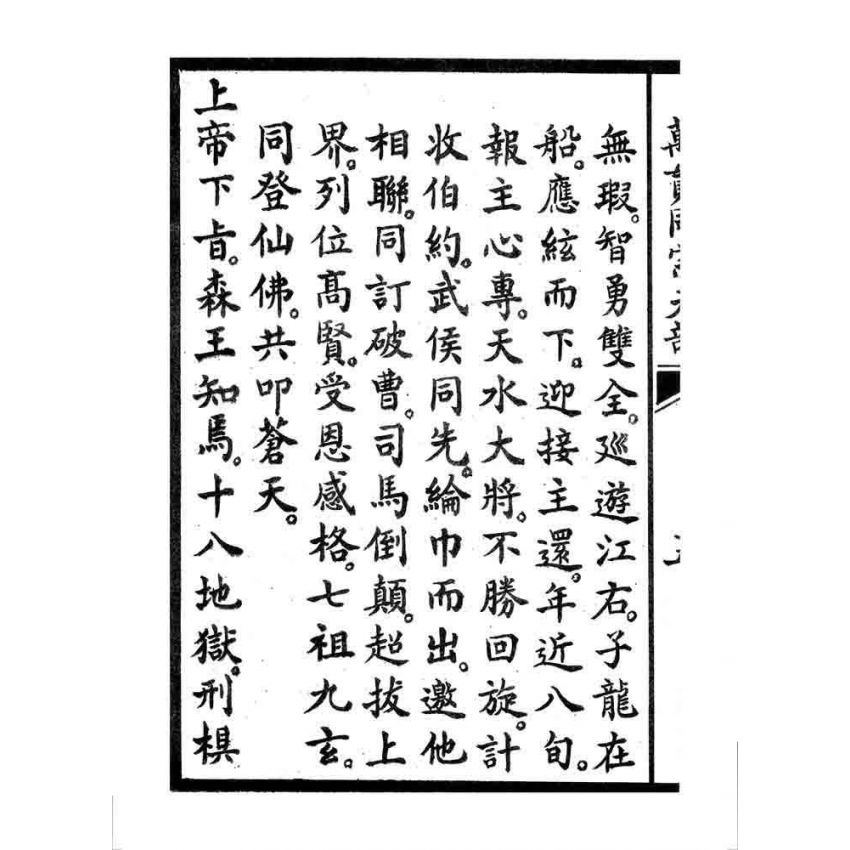 無瑕。智勇雙全。巡遊江右。子龍在
船。應絃而下。迎接主還。年近八旬。
報主心專。天水大將。不勝回旋。計
收伯約。武侯同先。綸巾而出。邀他
相聯。同訂破曹。司馬倒顛。超拔上
界。列位高賢。受恩感格。七祖九玄。
同登仙佛。共叩蒼天。
上帝下旨。森王知焉。十八地獄。刑棋